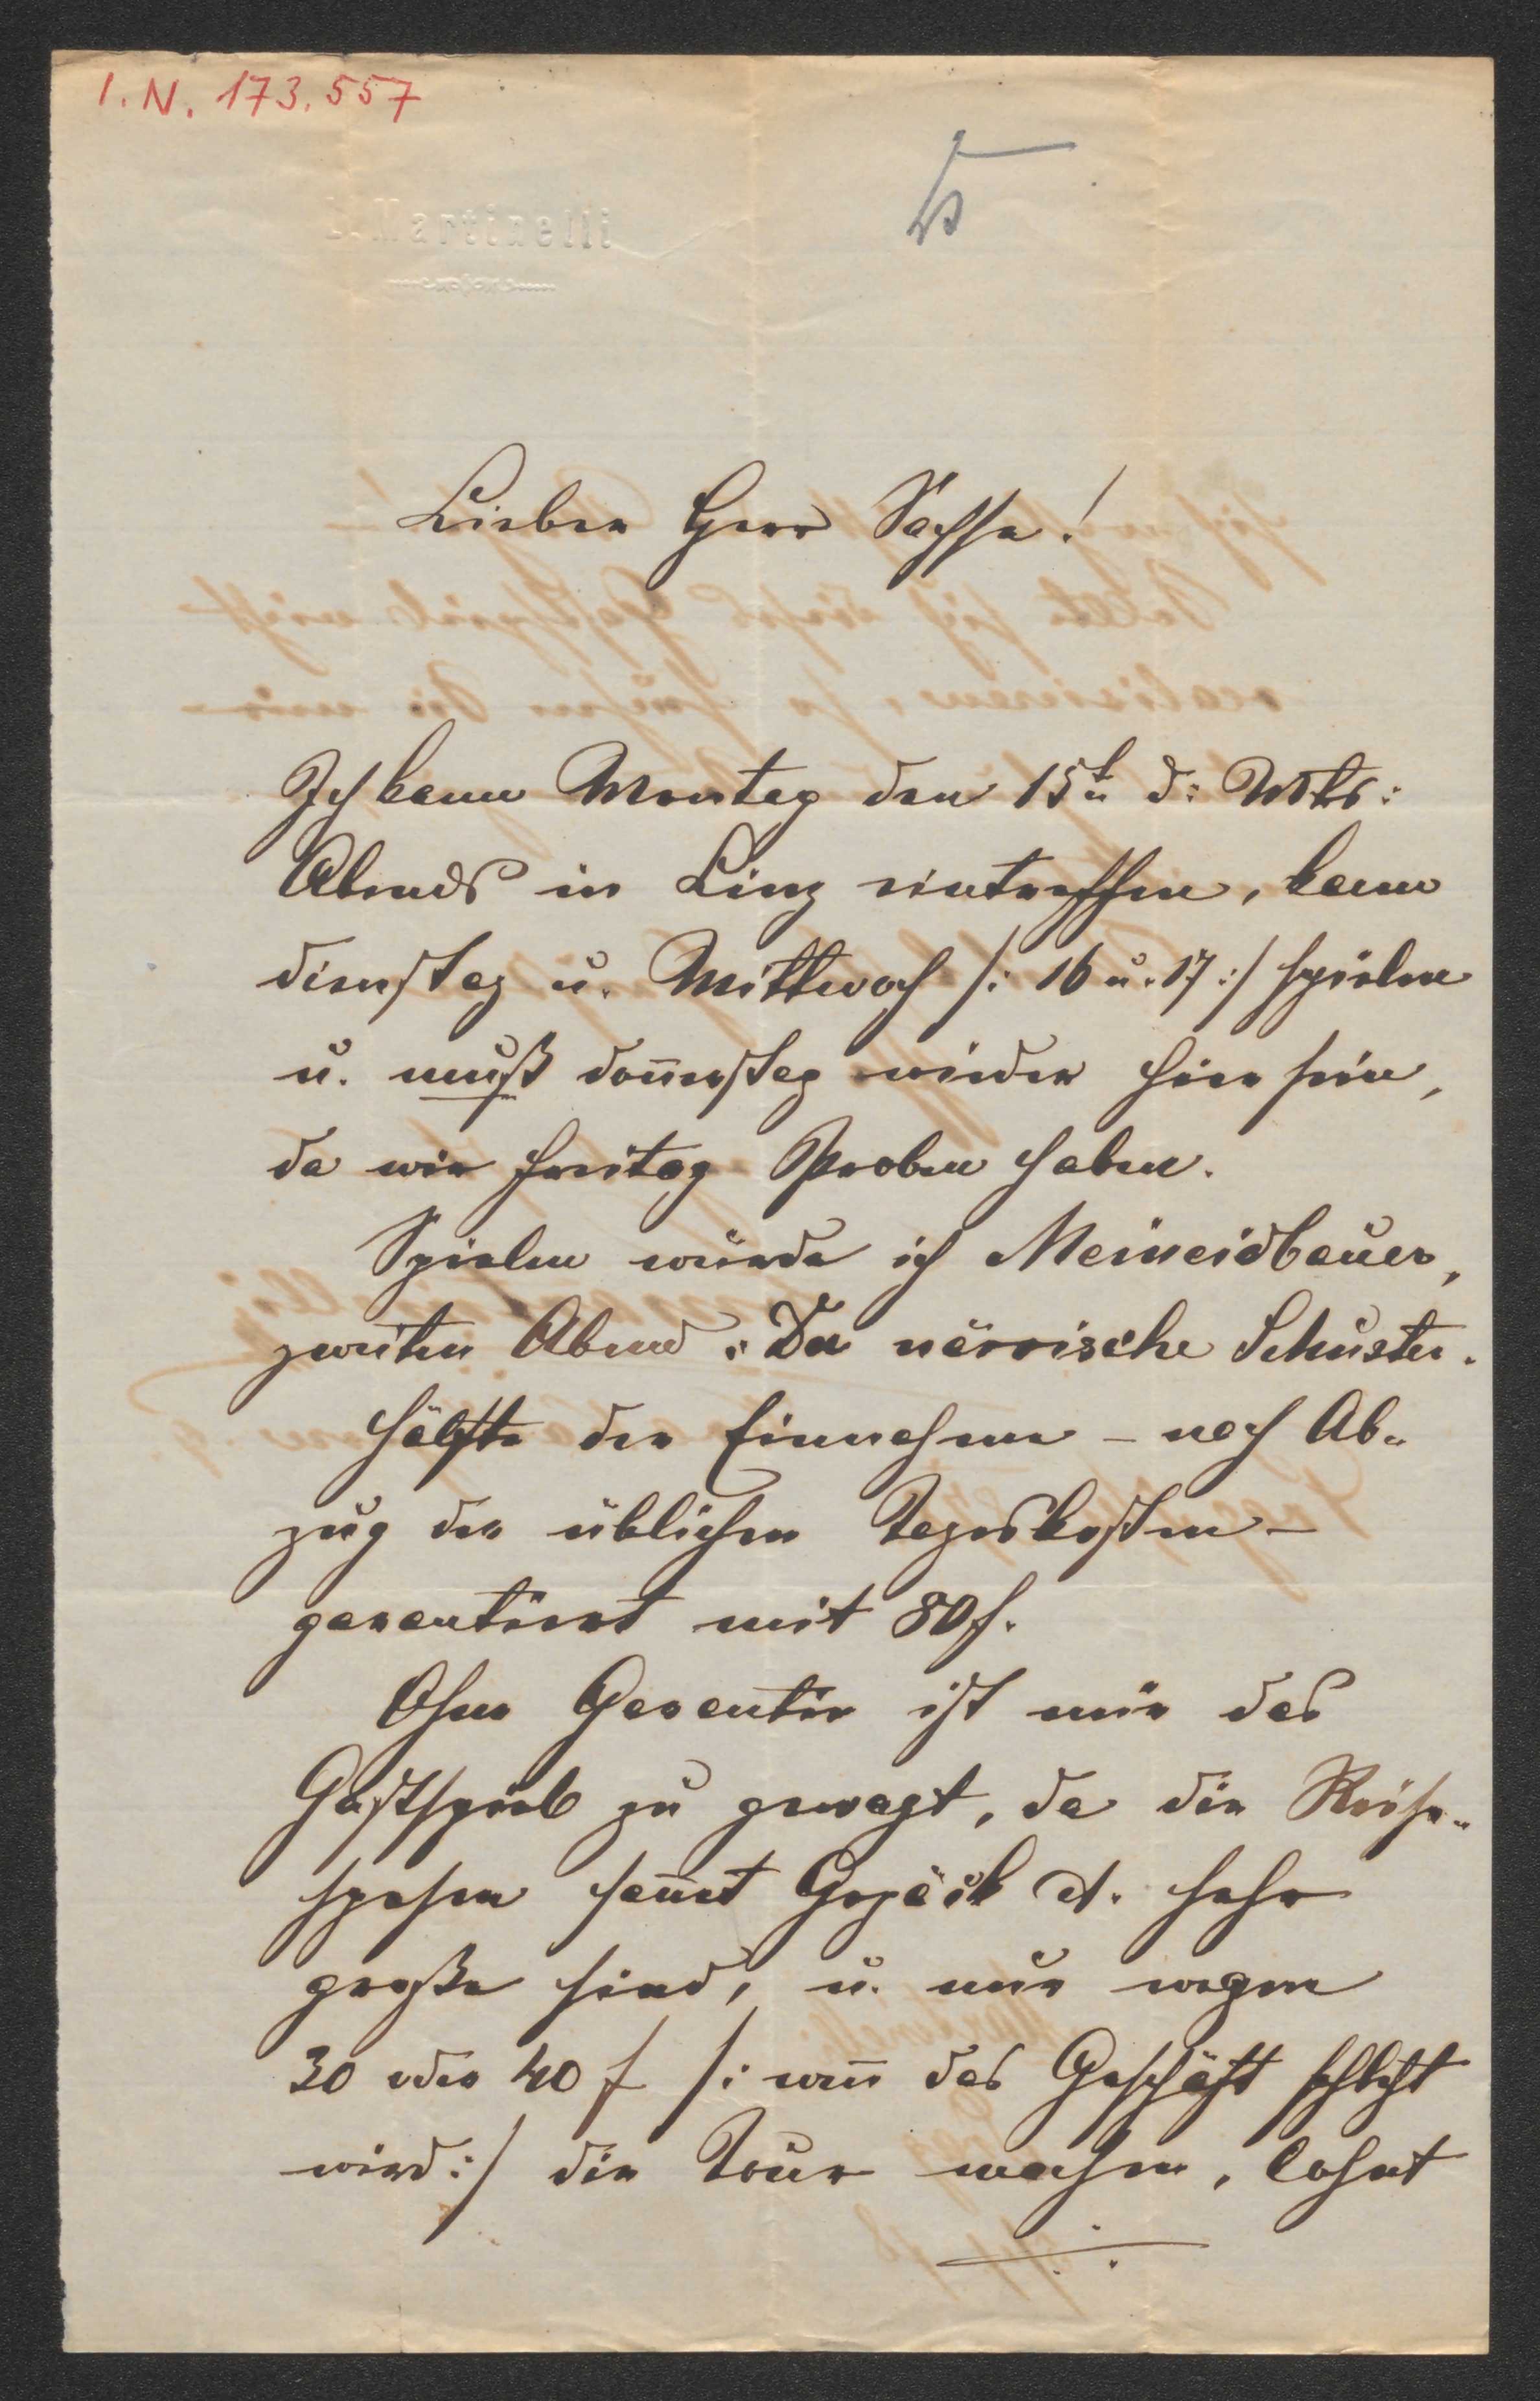 I. N. 173.557
L. Martinelli
Lieber Herr Sachse!
Ich kann Montag den 15tn d: Mts:
Abends in Linz eintreffen, kann
dienstag u. Mittwoch /: 16 u. 17 :/ spielen
u. muß don̄erstag wieder hier sein,
da wir freitag Proben haben.
Spielen würde ich Meineidbauer,
zweiten Abend: Der närrische Schuster.
Hälfte der Einnahme – nach Ab-
zug der üblichen Tageskosten –
garantiert mit 80 f.
Ohne Garantie ist mir das
Gastspiel zu gewagt, da die Reise-
spesen sam̄t Gepäck et. sehr
große sind, u. nur wegen
30 oder 40 f /: wen̄ das Geschäft schlecht
wird :/ die Tour machen, lohnt